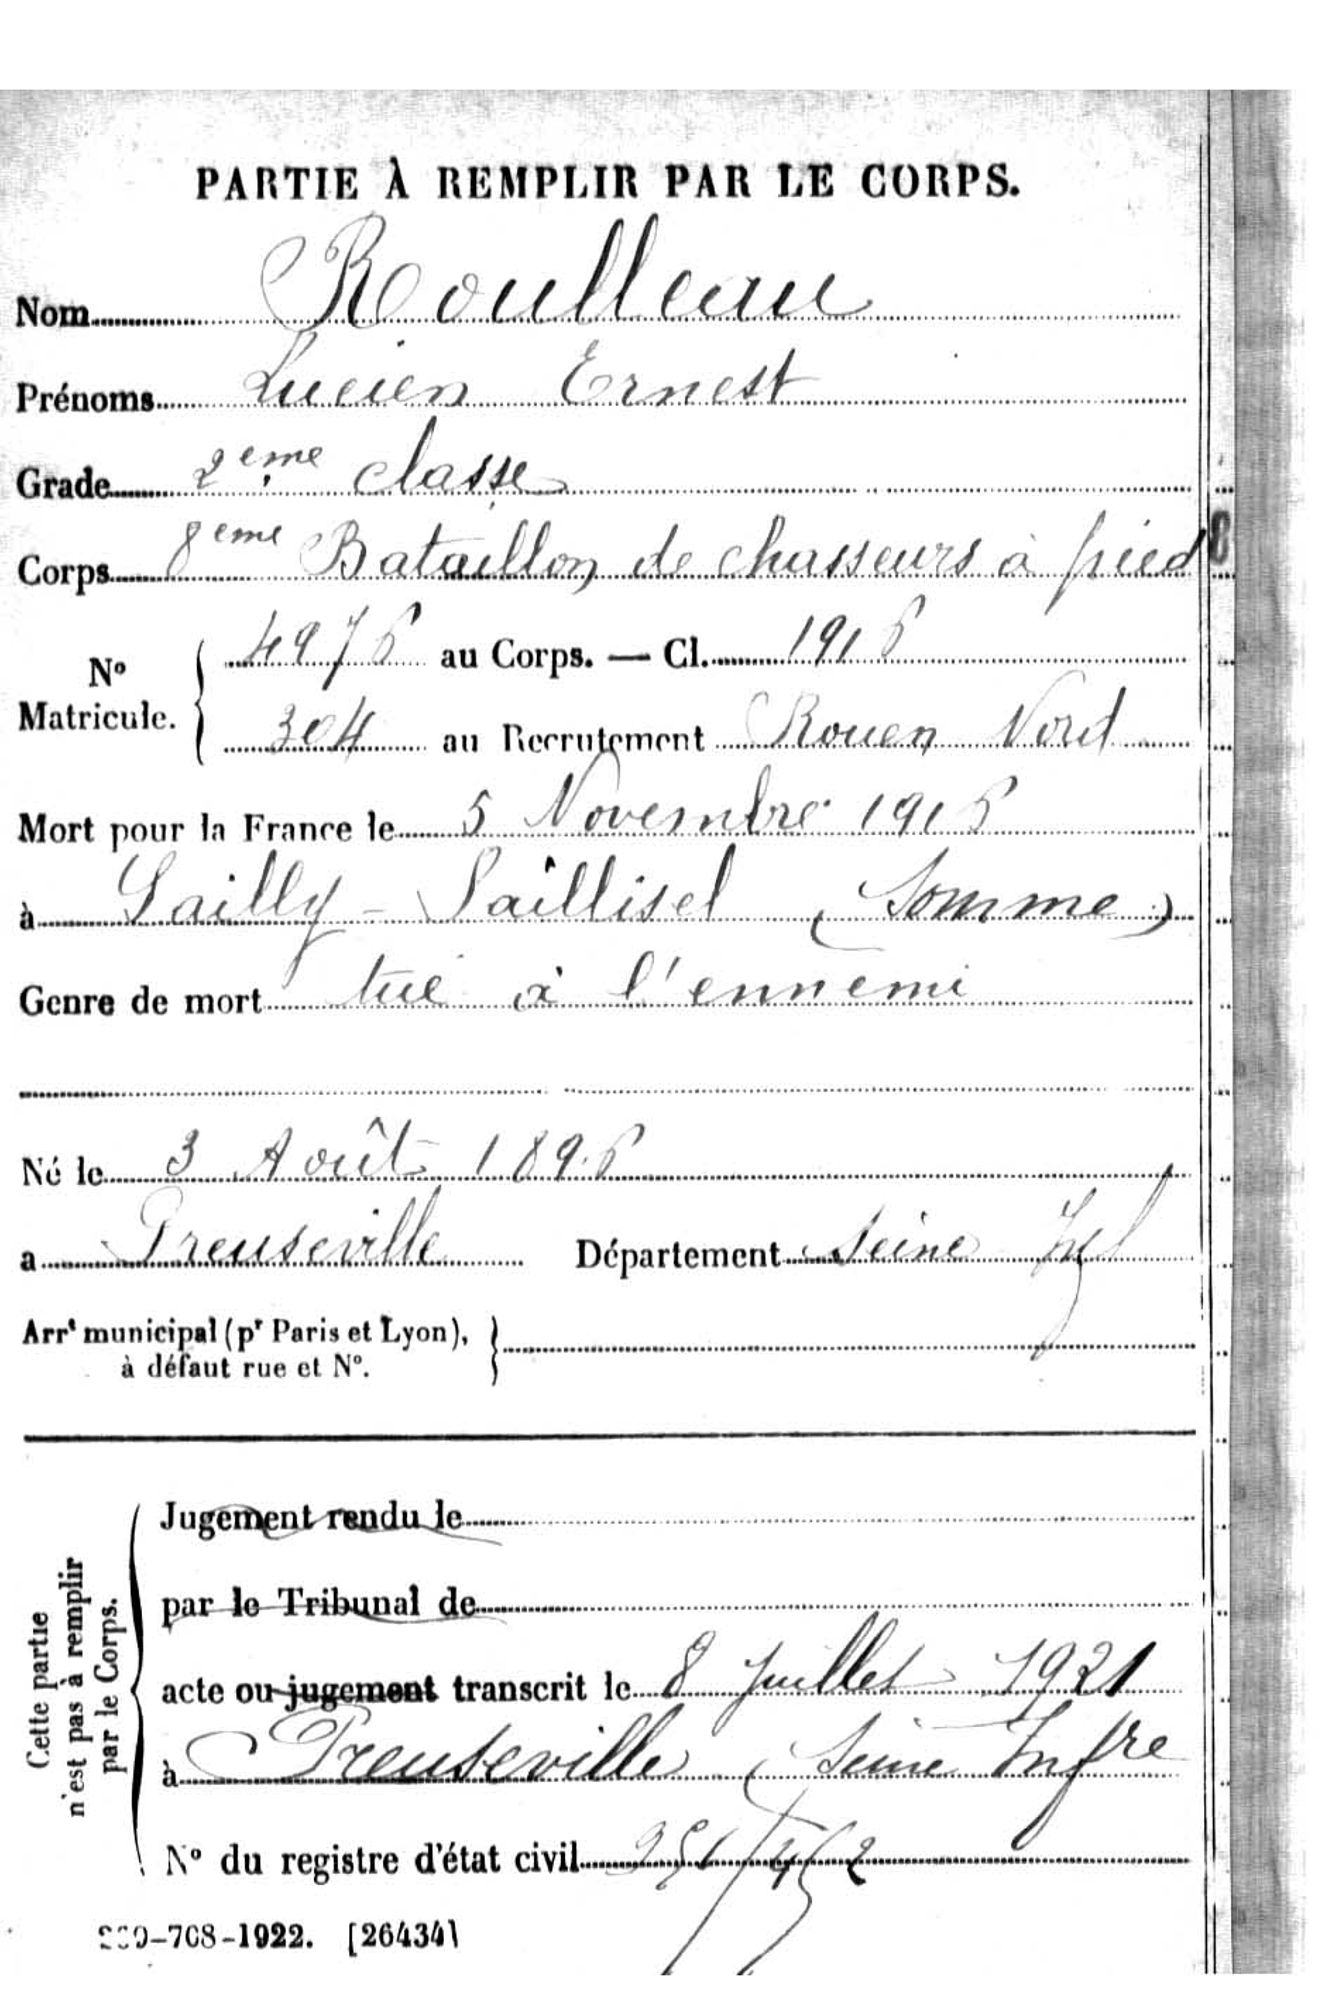 PARTIE À REMPLIR PAR LE CORPS.
Nom Roulleau
Prénoms Lucien Ernest
Grade 2eme classe
Corps 8eme Bataillon de chasseurs à pied
No Matricule. { 4976 au Corps. — Cl. 1916
304 au Recrutement Rouen Nord
Mort pour la France le 5 Novembre 1916
à Sailly-Saillisel (Somme)
Genre de mort tué à l'ennemi
Né le 3 Août 1896
a Preuseville Département Seine Infre
Arrt municipal (pr Paris et Lyon),
à défaut rue et No.
Cette partie
n'est pas à remplir
par le Corps.
Jugement rendu le
par le Tribunal de
acte ou jugement transcrit le 8 juillet 1921
à Preuseville (Seine Infre
No du registre d'état civil
-708-1922. [26434]